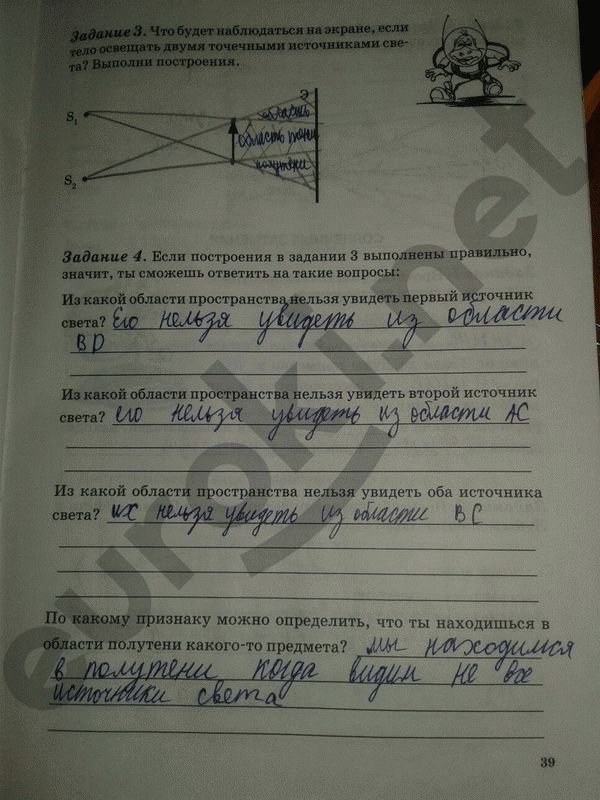 Задание 3. Что будет наблюдаться на экране, если
тело освещать двумя точечными источниками све-
та? Выполни построения.
Э
S1
область
область тени
полутени
S2
Задание 4. Если построения в задании 3 выполнены правильно,
значит, ты сможешь ответить на такие вопросы:
Из какой области пространства нельзя увидеть первый источник
света? Его нельзя увидеть из области
BD
Из какой области пространства нельзя увидеть второй источник
света? его нельзя увидеть из области АС
Из какой области пространства нельзя увидеть оба источника
света? их нельзя увидеть из области ВС
По какому признаку можно определить, что ты находишься в
области полутени какого-то предмета? мы находимся
в полутени когда видим не все
источники света
39
euroki.net